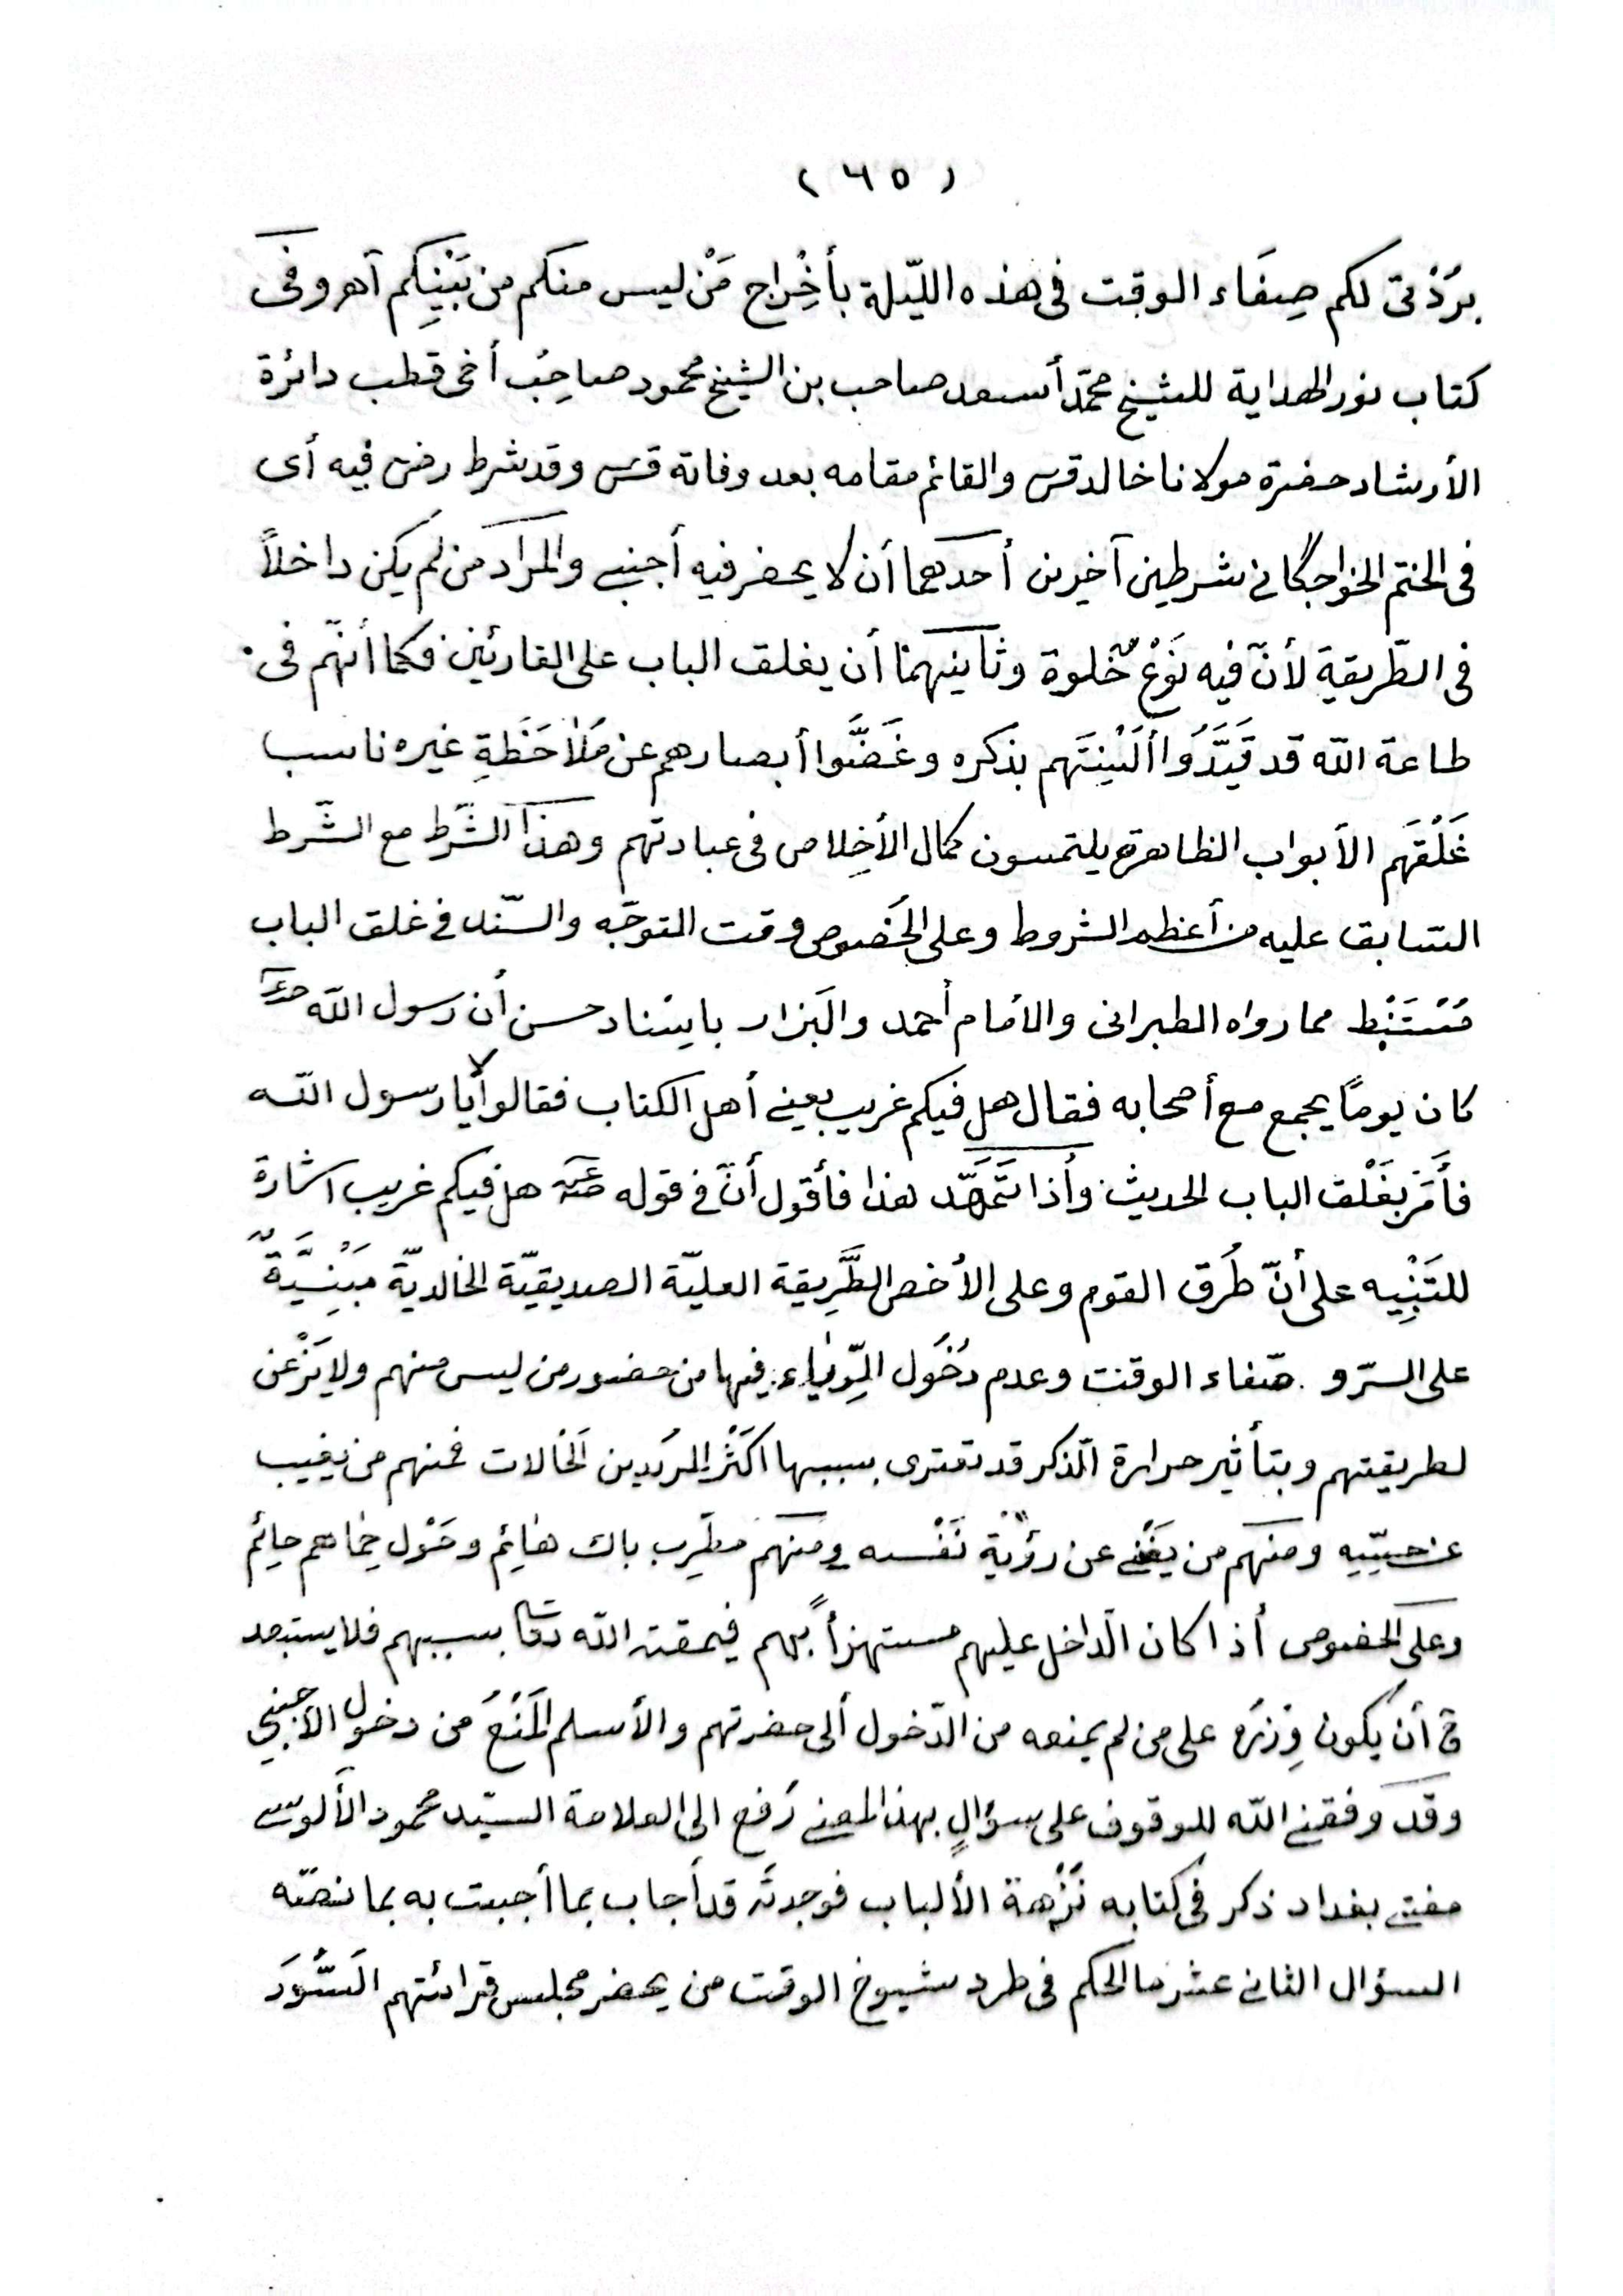 ( ٦٥ )
برُدْتى لكم صِفَاء الوقت فى هذه الليّلة بأخِْراج مَنْ ليس منكم من بَيْنِكم آهر وفى
كتاب نور الهداية للشيخ محمّد أسعد صاحب بن الشيخ محمود صاحِبُ أخى قطب دائرة
الأرشاد حضرة مولانا خالد قس والقائم مقامه بعد وفاته قس وقد شرط رض فيه أى
فى الختم الخواجگانى شرطين آخرين أحدهما أن لا يحضر فيه أجنبى والمراد من لم يكن داخلاً
فى الطّريقة لأنّ فيه نَوْعُ خُلوة وثانيهما أن يغلق الباب على القارئين فكما أنّهم فى
طاعة الله قد قَيَّدُوا ألْسِنَتَهم بذكره وغَضَّوا أبصارهم عن مُلاحَظَةِ غيره ناسب
غَلْقَهم الأبواب الظاهرة يلتمسون كمال الأخِلاص فى عبادتهم وهذا الشَّرط مع الشّرط
السّابق عليه من أعظم الشروط وعلى الخُصوص وقت التوجّه والسّند فى غلق الباب
مُسْتَنْبط مما رواه الطبرانى والأمام أحمد والبَزار بإسناد حسن أن رسول الله صعلم
كان يومًا يجمع مع أصحابه فقال هل فيكم غريب يعنى أهل الكتاب فقالوا لا يا رسول الله
فأَمَرَ بغَلْق الباب الحديث وأذا تَمَهَّد هذا فأقول أنّ فى قوله صعم هل فيكم غريب اشارة
للتَنْبِيه على أنّ طُرَق القوم وعلى الأخص الطَّرِيقة العليّة الصديقيّة الخالديّة مَبْنِيَّةٌ
على السرّ و صّفاء الوقت وعدم دُخُول الرِّيٰاء فيها من حضور من ليس منهم ولا يَزْعن
لطريقتهم وبتأثير حرارة الّذكر قد تعترى بسببها اكَثْرُ المرُيدين الحَالات فمنهم من يغيب
عن حِسِّيِه ومنهم من يَفْنى عن رؤْيَةِ نَفْسه ومنهم مطَرِب باك هَائِم وحَوْل خِماهم حائِم
وعلى الخصوص أذا كان الّداخل عليهم مستهزأً بهم فيمقته الله تعا بسببهم فلا يستبعد
فى أن يكون وِزْرُه على من لم يمنعه من الدّخول ألى حضرتهم والأسلم المَنْعُ من دخول الأجنبي
وقد وفقنى الله للوقوف على سؤالٍ بهذا المعنى رُفع الى العلامة السيّد محمود الألوسى
مفتى بغداد ذكر فى كتابه نُزْهة الألباب فوجدتُه قد أجاب بما أجبت به بما نصّه
السؤال الثانى عشر ما الحكم فى طرد شيوخ الوقت من يحضر مجلس قرائتهم السُّوَر